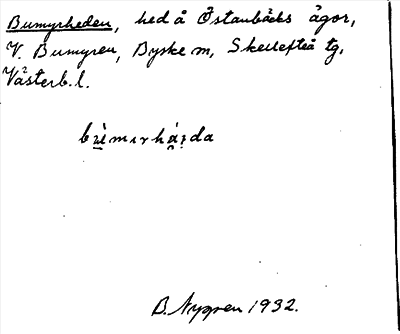 Bumyrheden, hed å Östanbäcks ägor,
V. Bumyren, Byske sn, Skellefteå tg,
Västerb. l.
B. Nygren 1932.